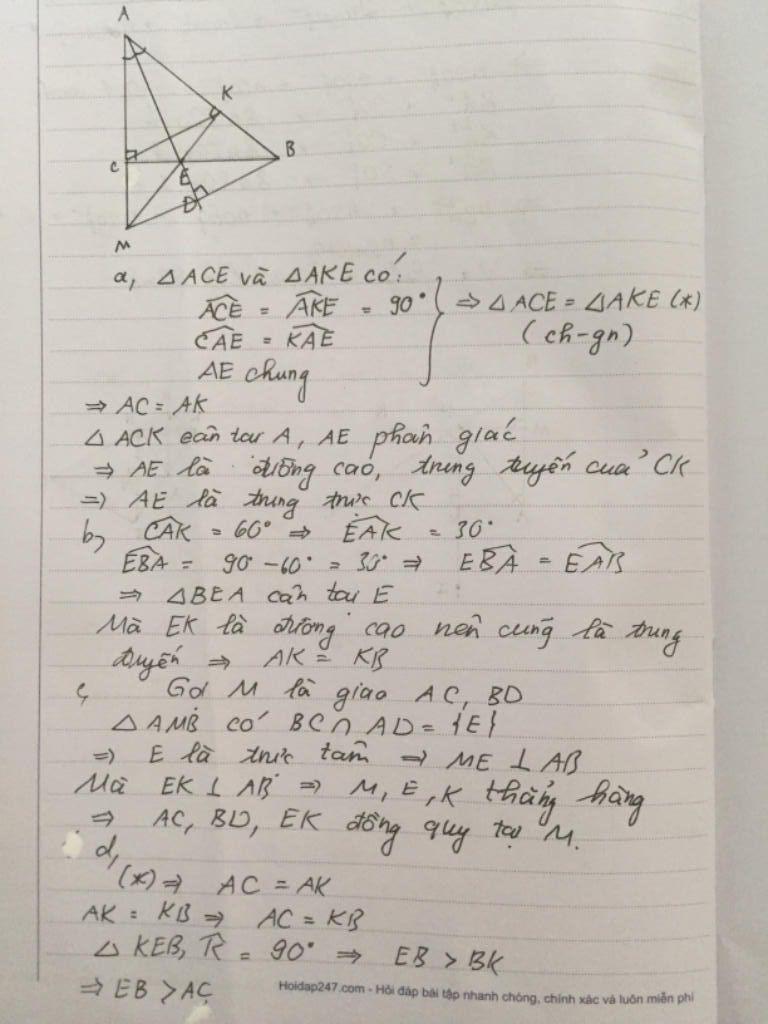 A
K
C
E
B
D
M
a, △ACE và △AKE có:
ACE = AKE = 90° ⇒ △ACE = △AKE (*)
CAE = KAE (ch-gn)
AE chung
⇒ AC = AK
△ ACK cân tại A, AE phân giác
⇒ AE là đường cao, trung tuyến của CK
⇒ AE là trung trực CK
b, CAK = 60° ⇒ EAK = 30°
EBA = 90° - 60° = 30° ⇒ EBA = EAB
⇒ △BEA cân tại E
Mà EK là đường cao nên cũng là trung
tuyến ⇒ AK = KB
c, Gọi M là giao AC, BD
△ AMB có BC ∩ AD = {E}
⇒ E là trực tâm ⇒ ME ⊥ AB
Mà EK ⊥ AB ⇒ M, E, K thẳng hàng
⇒ AC, BD, EK đồng quy tại M.
d,
(*) ⇒ AC = AK
AK = KB ⇒ AC = KB
△ KEB, K = 90° ⇒ EB > BK
⇒ EB > AC
Hoidap247.com - Hỏi đáp bài tập nhanh chóng, chính xác và luôn miễn phí